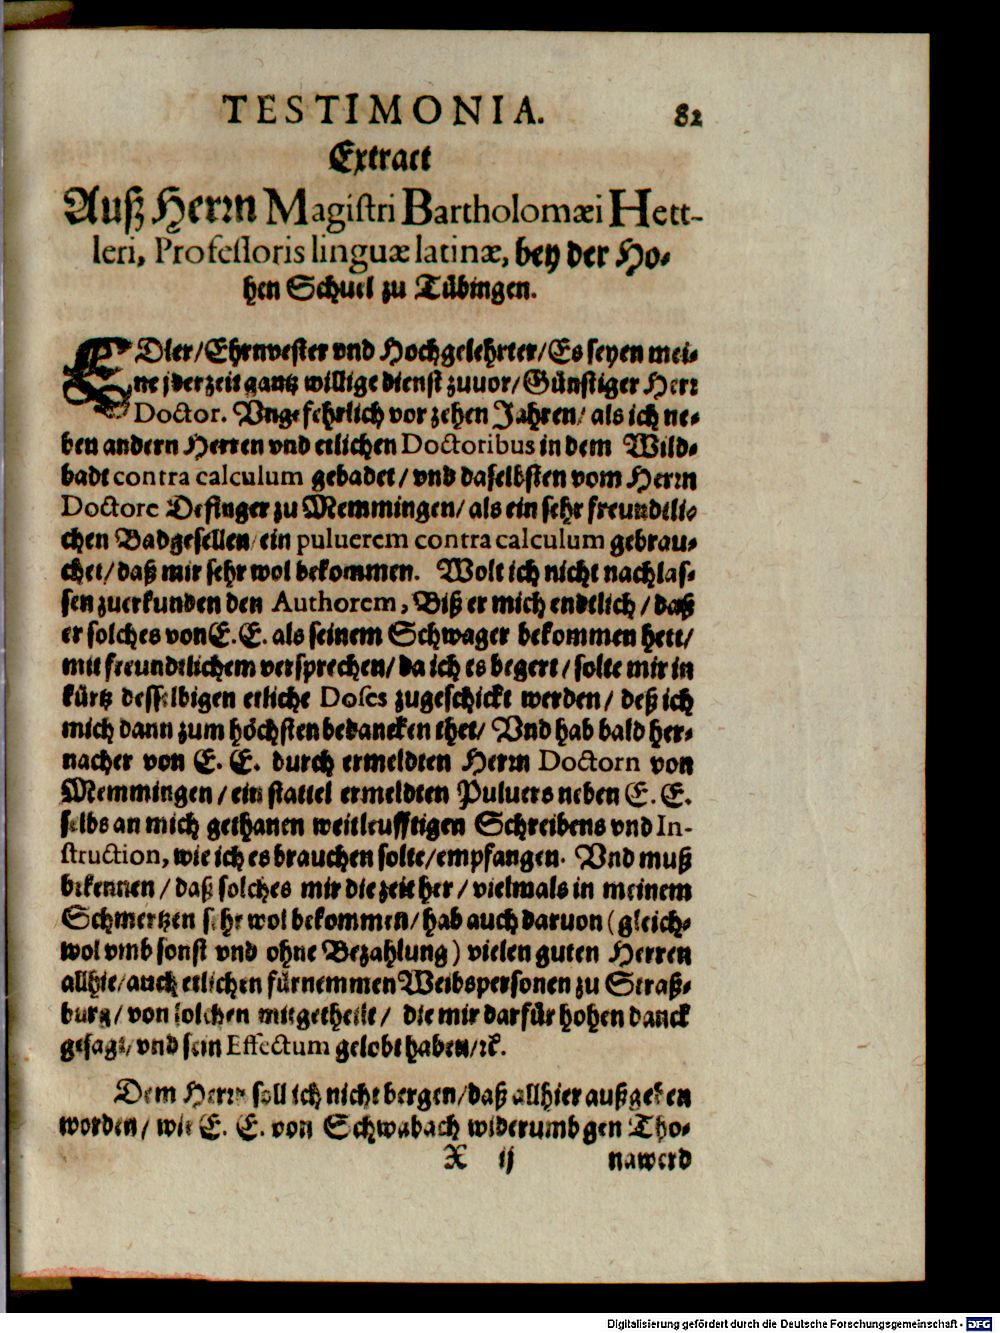 TESTIMONIA. 82
Extract
Auß Herrn Magistri Bartholomæi Hett-
leri, Professoris linguæ latinæ, bey der Ho-
hen Schuel zu Tübingen.
EDler/Ehrnvester vnd Hochgelehrter/Es seyen mei-
ne jderzeit gantz willige dienst zuuor/Günstiger Herr
Doctor. Vngefehrlich vor zehen Jahren/ als ich ne-
ben andern Herren vnd etlichen Doctoribus in dem Wild-
badt contra calculum gebadet/ vnd daselbsten vom Herrn
Doctore Desinger zu Memmingen/ als ein sehr freundtli-
chen Badgesellen/ein puluerem contra calculum gebrau-
chet/daß mir sehr wol bekommen. Wolt ich nicht nachlas-
sen zuerkunden den Authorem, Biß er mich endtlich/daß
er solches von E. E. als seinem Schwager bekommen hett/
mit freundtlichem versprechen/da ich es begert/solte mir in
kürtz desselbigen etliche Doses zugeschickt werden/ deß ich
mich dann zum höchsten bedancken thet/ Vnd hab bald her-
nacher von E. E. durch ermeldten Herrn Doctorn von
Memmingen/ein stattel ermeldten Puluers neben E. E.
selbs an mich gethanen weitleufftigen Schreibens vnd In-
struction, wie ich es brauchen solte/empfangen. Vnd muß
bekennen/daß solches mir die zeit her/vielmals in meinem
Schmertzen sehr wol bekommen/hab auch daruon (gleich-
wol vmb sonst vnd ohne Bezahlung) vielen guten Herren
allhie/auch etlichen fürnemmen Weibspersonen zu Straß-
burg/von solchen mitgetheilt/ die mir darfür hohen danck
gesagt/vnd sein Effectum gelobt haben/ꝛc.
Dem Herrn soll ich nicht bergen/daß allhier außgeben
worden/ wie E. E. von Schwabach widerumb gen Tho-
X ij nawerd
Digitalisierung gefördert durch die Deutsche Forschungsgemeinschaft - DFG